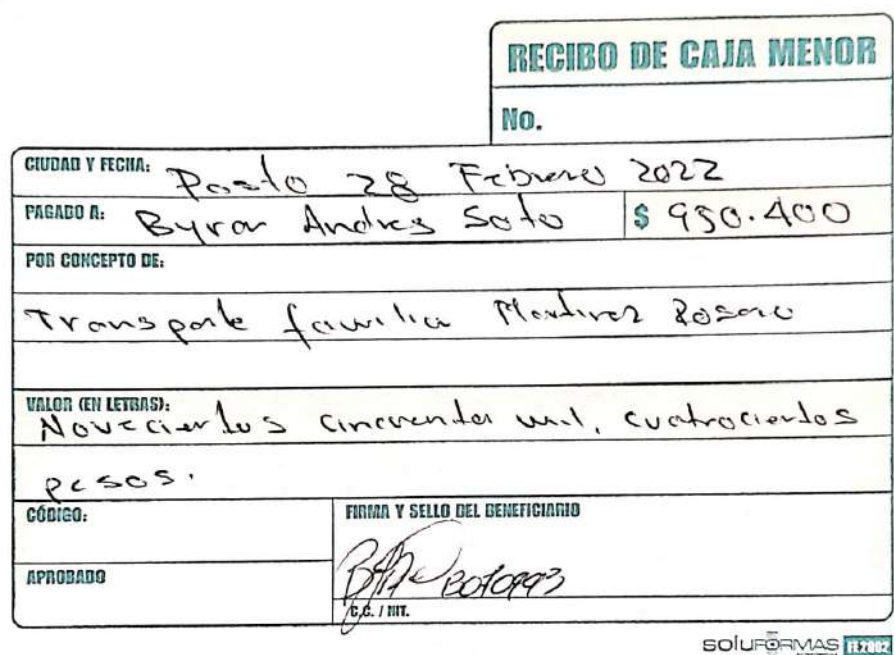 RECIBO DE CAJA MENOR
No.
CIUDAD Y FECHA: Pasto 28 Febrero 2022
PAGADO A: Byron Andres Soto $ 950.400
POR CONCEPTO DE:
Transporte familia Martinez Rosero
VALOR (EN LETRAS):
Novecientos cincuenta mil, cuatrocientos
pesos.
CÓDIGO:
FIRMA Y SELLO DEL BENEFICIARIO
APROBADO
C.C. / NIT.
SOlUFORMAS FE2002